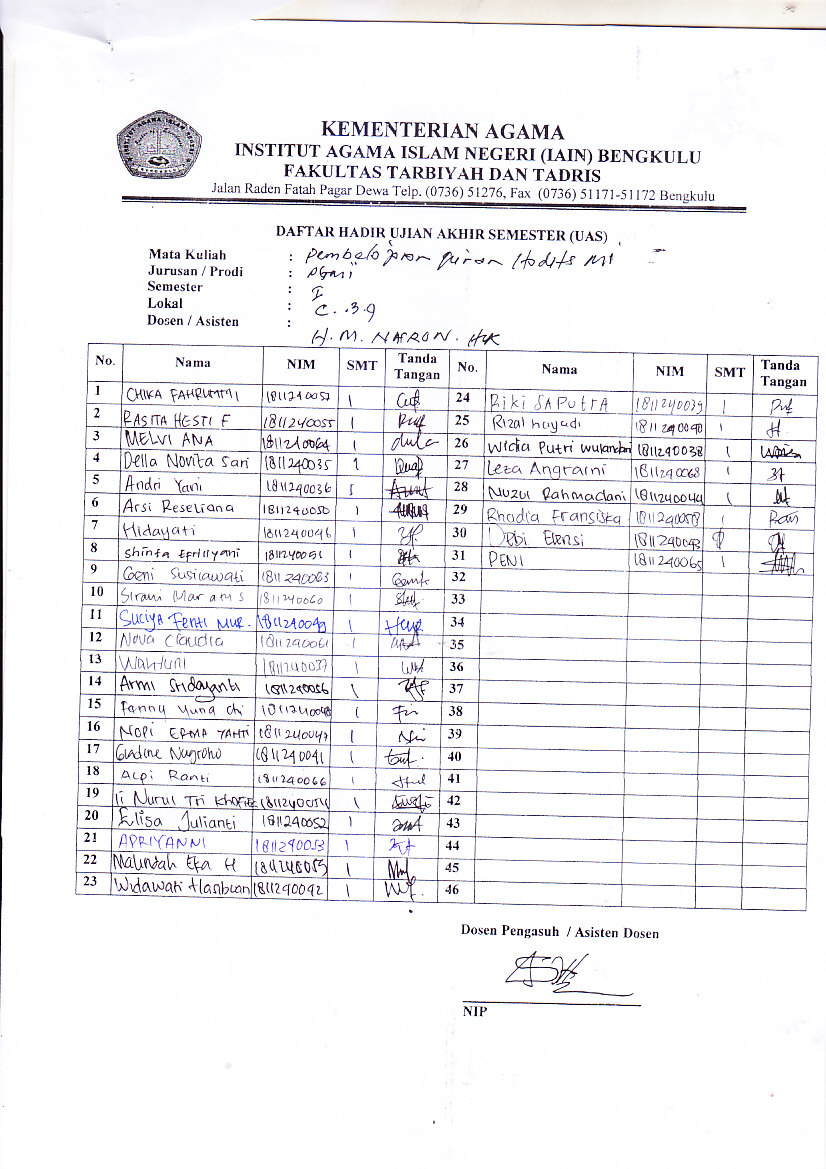 KEMENTERIAN AGAMA
INSTITUT AGAMA ISLAM NEGERI (IAIN) BENGKULU
FAKULTAS TARBIYAH DAN TADRIS
Jalan Raden Fatah Pagar Dewa Telp. (0736) 51276, Fax (0736) 51171-51172 Bengkulu
DAFTAR HADIR UJIAN AKHIR SEMESTER (UAS)
Mata Kuliah : Hadits MI
Jurusan / Prodi : PGMI
Semester : I
Lokal : C.3.9
Dosen / Asisten : H. M. NASRON. HK
No. Nama NIM SMT Tanda Tangan No. Nama NIM SMT Tanda Tangan
1 CHIKA 1811240057 1 24 Riki SAPUTRA 1811240039 1
2 RASITA HESTI F 1811240055 1 25 Rizal hayadi 1
3 MELVI ANA 1811240064 1 26 Widia Putri wulandari 1811240038 1
4 Della Novita Sari 1811240035 1 27 Leza Angraini 1811240068 1
5 Andri Yani 1811240036 1 28 Nuzul Rahmadani 1811240044 1
6 Arsi Reseliana 1811240050 1 29 Rhodia Fransiska 1811240058 1
7 Hidayati 1811240046 1 30 Debi Elensi 1811240043
8 Shinta Epriliyani 1 31 PENI 1811240065 1
9 Geni Susilawati 1811240063 1 32
10 1811240060 1 33
11 Suciya Fenti Nur. 1811240049 1 34
12 Nova Claudia 1811240061 1 35
13 Wahyuni 1811240037 1 36
14 Armi Sridayanti 1811240056 1 37
15 Fanny 1811240048 1 38
16 NOPI ERMA YANTI 1811240047 1 39
17 Nugroho 1811240041 1 40
18 Alpi Ranti 1811240066 1 41
19 Ii Nurul Tri 1811240054 1 42
20 Elisa Julianti 1811240052 1 43
21 APRIYANNI 1811240053 1 44
22 Eka H 1 45
23 Widawati Hasibuan 1811240042 1 46
Dosen Pengasuh / Asisten Dosen
NIP